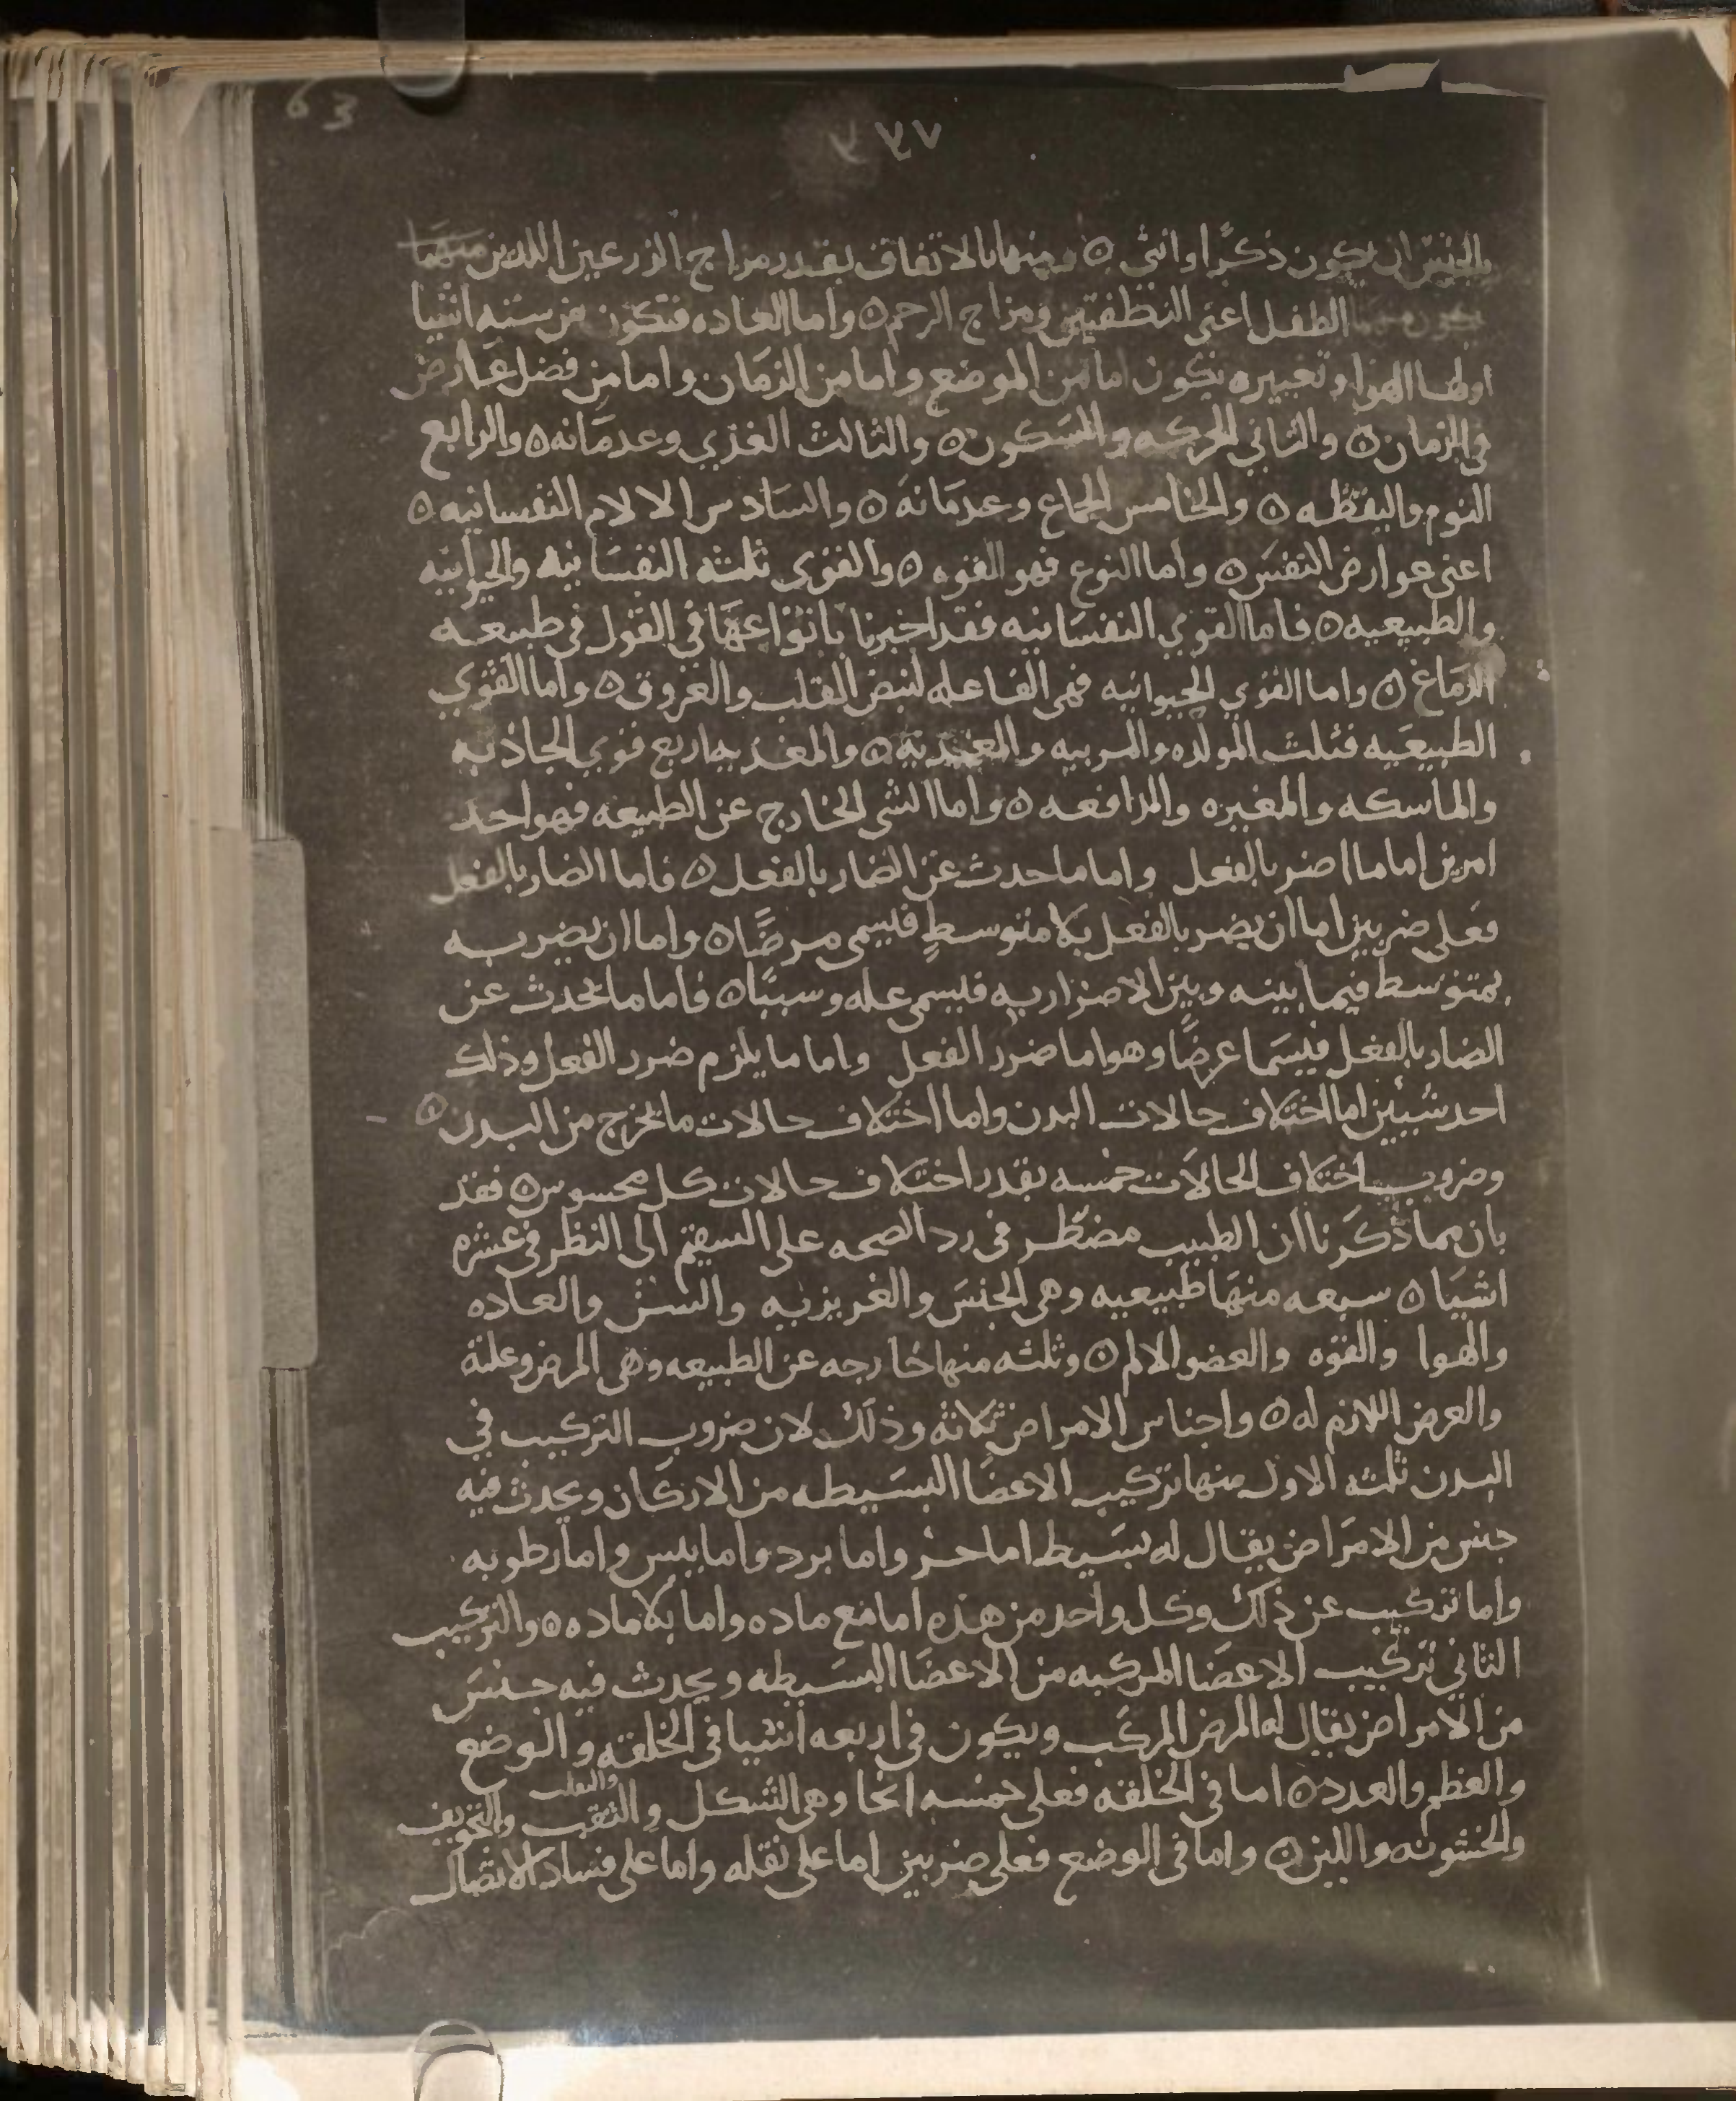 63
بالجنس ان يكون ذكرًا او انثى ٥ ومنها بالاتفاق بقدر مزاج الزرعين اللذين منهما
الطفل اعنى النطفتين ومزاج الرحم ٥ واما العاده فتكون من سته اشيا
اولها الهوا وتغييره يكون اما من الموضع واما من الزمان واما من فضل عارض
في الزمان ٥ والثاني الحركه والسكون ٥ والثالث الغذي وعدمانه ٥ والرابع
النوم واليقظه ٥ والخامس الجماع وعدمانه ٥ والسادس الالام النفسانيه ٥
اعنى عوارض النفس ٥ واما النوع فهو القوه ٥ والقوى ثلثه النفسانيه والحيوانيه
والطبيعيه ٥ فاما القوي النفسانيه فقد اخبرنا بانواعها في القول في طبيعه
الدماغ ٥ واما القوي الحيوانيه فهى الفاعله لنبض القلب والعروق ٥ واما القوي
الطبيعيه فثلث المولده والمربيه والمغذيه ٥ والمغذيه اربع قوي الجاذبه
والماسكه والمغيره والدافعه ٥ واما الشي الخارج عن الطبيعه فهو احد
امرين اما ما اضر بالفعل واما ما حدث عن الضار بالفعل ٥ فاما الضار بالفعل
فعلى ضربين اما ان يضر بالفعل بلا متوسطٍ فيسمى مرضًا ٥ واما ان يضر به
بمتوسط فيما بينه وبين الاضرار به فيسمى عله وسببًا ٥ فاما ما يحدث عن
الضار بالفعل فيسما عرضًا وهو اما ضرر الفعل واما ما يلزم ضرر الفعل وذلك
احد شيئين اما اختلاف حالات البدن واما اختلاف حالات ما يخرج من البدن ٥
وضروب اختلاف الحالات خمسه بقدر اختلاف حالات كل محسوس ٥ فقد
بان بما ذكرنا ان الطبيب مضطر في رد الصحه على السقيم الى النظر في عشره
اشيا ٥ سبعه منها طبيعيه وهي الجنس والغريزيه والسن والعاده
والهوا والقوه والعضو الالم ٥ وثلثه منها خارجه عن الطبيعه وهى المرض وعلته
والعرض اللازم له ٥ واجناس الامراض ثلاثه وذلك لان ضروب التركيب في
البدن ثلثه الاول منها تركيب الاعضا البسيطه من الاركان ويحدث فيه
جنس من الامراض يقال له بسيط اما حر واما برد واما يبس واما رطوبه
واما تركيب عن ذلك وكل واحد من هذه اما مع ماده واما بلا ماده ٥ والتركيب
الثاني تركيب الاعضا المركبه من الاعضا البسيطه ويحدث فيه جنس
من الامراض يقال له المرض المركب ويكون في اربعه اشيا في الخلقه والوضع
والعظم والعدد ٥ اما في الخلقه فعلى خمسه انحا وهي الشكل والثقب والتجويف
والخشونه واللين ٥ واما في الوضع فعلى ضربين اما على نقله واما على فساد الاتصال